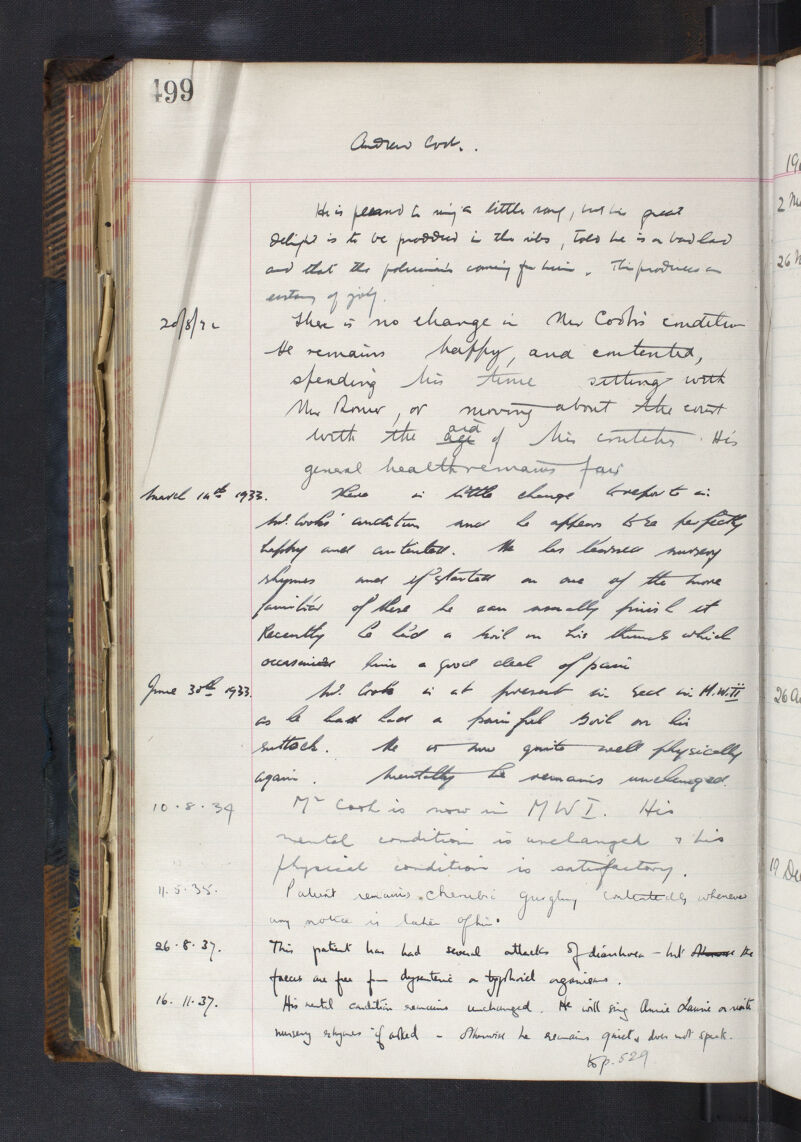 499
Andrew Cook.
He is pleased to sing a little song, but his great
delight is to be prodded in the ribs, told he is a bad lad
and that the policeman's coming for him. This produces an
ecstasy of joy.
20/8/32 There is no change in Mr Cook's condition
He remains happy, and contented,
spending his time sitting with
Mr, or moving about the court
with the aid of his crutches. His
general health remains fair
March 14th 1933. There is little change to report in
Mr. Cooks' condition and he appears to be perfectly
happy and contented. He has learned nursery
rhymes and if started on one of the more
familiar of these he can usually finish it
Recently he had a boil on his thumb which
occasioned him a good deal of pain
June 30th 1933. Mr. Cook is at present in bed in M.W.II
as he has had a painful boil on his
buttock. He is now quite well physically
again. Mentally he remains unchanged.
10.8.34 Mr Cook is now in MWI. His
mental condition is unchanged & his
physical condition is satisfactory.
11.5.35. Patient remains cherubic gurgling contentedly whenever
any notice is taken of him.
26.8.37. This patient has had several attacks of diarrhoea - but the
faeces are free from dysenteric or typhoid organisms.
16.11.37. His mental condition remains unchanged. He will sing Annie Laurie or recite
nursery rhymes if asked - otherwise he remains quiet & does not speak.
to p. 529
2
26
26 Au
19 De